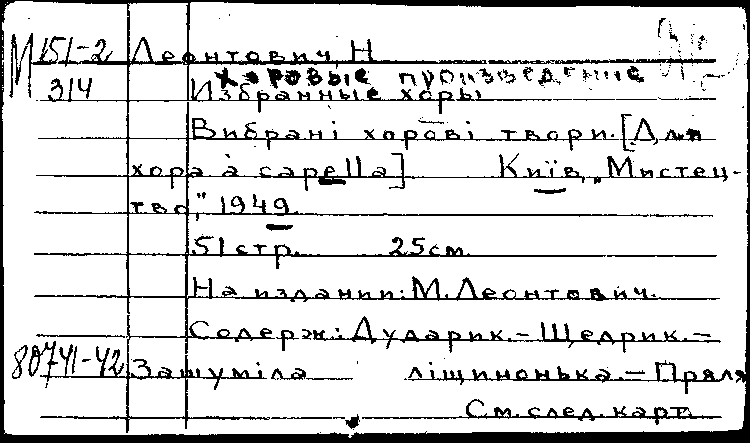 М 151-2 Леонтович, Н
314 Хоровые произведение
Избранные хоры
Вибрані хорові твори. [Для
хора à capella] Київ, „Мистец-
тво", 1949.
51 стр. 25 см.
На издании: М. Леонтович.
Содерж: Дударик. – Щедрик. –
80741-42 Зашуміла ліщинонька. – Пряля
См. след. карт.